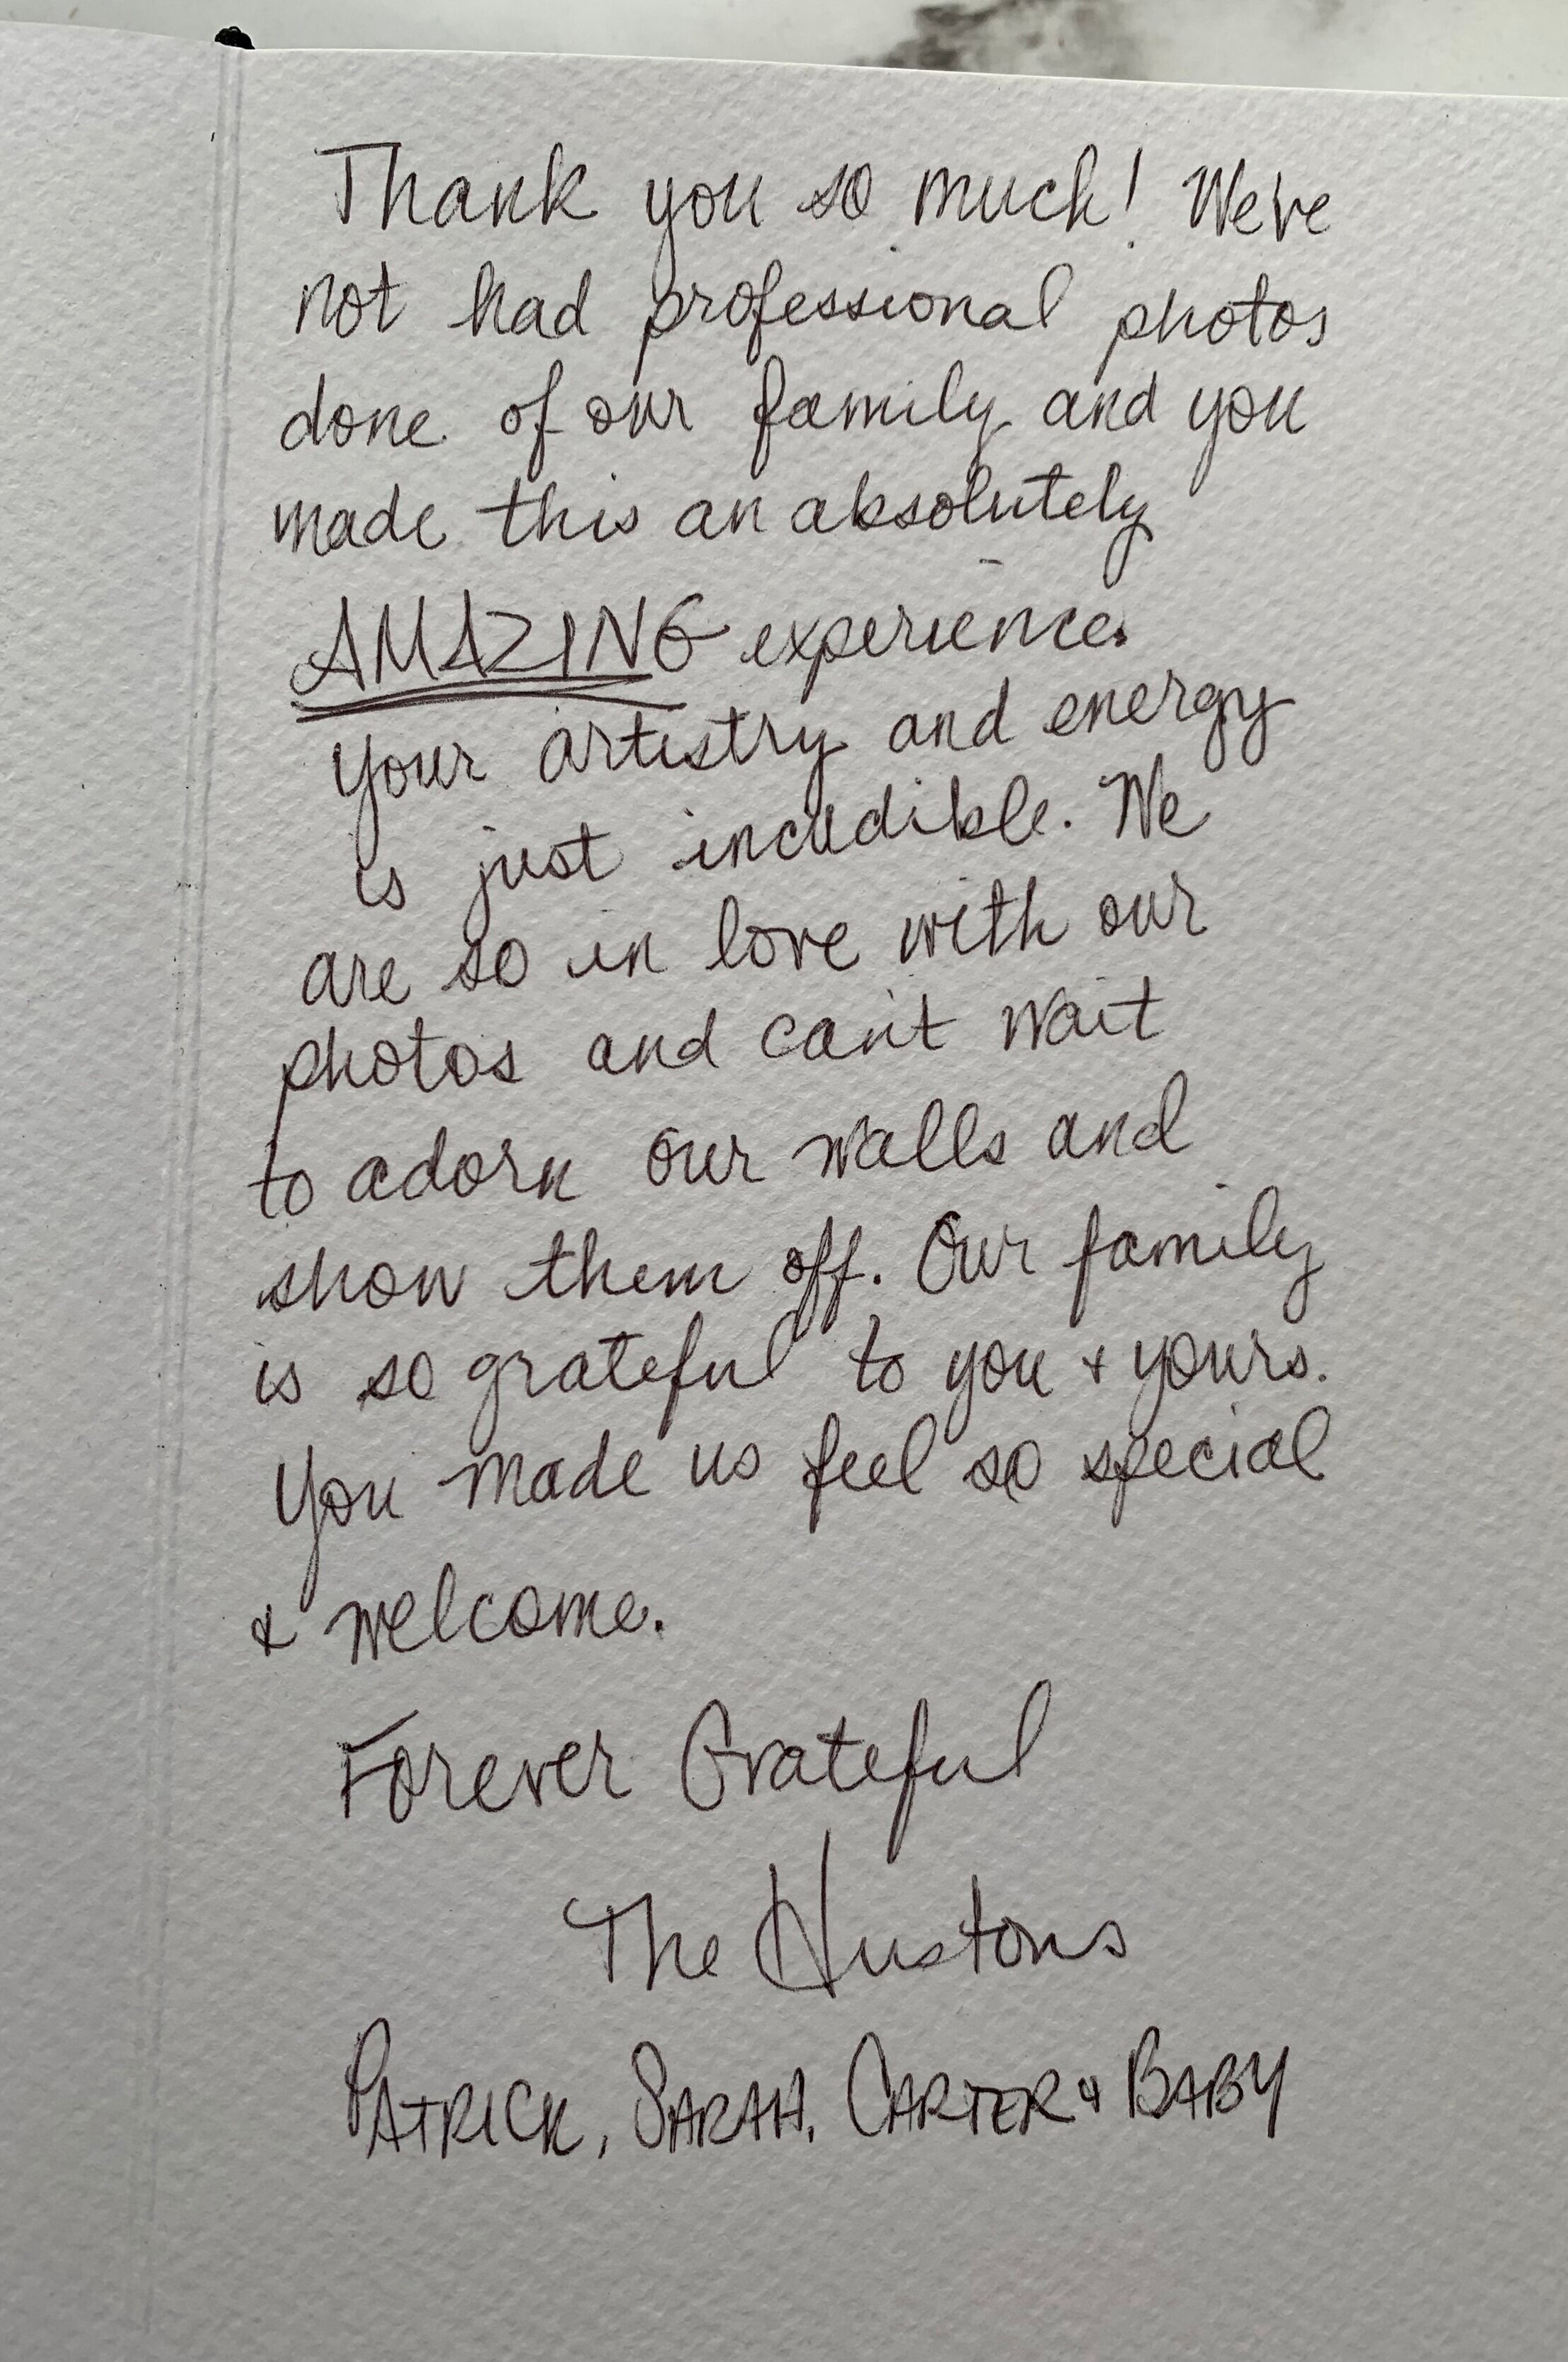 Thank you so much! We've
not had professional photos
done of our family and you
made this an absolutely
AMAZING experience.
Your artistry and energy
is just incredible. We
are so in love with our
photos and can't wait
to adorn our walls and
show them off. Our family
is so grateful to you & yours.
You made us feel so special
& welcome.
Forever Grateful
The Hustons
PATRICK, SARAH, CARTER & BABY